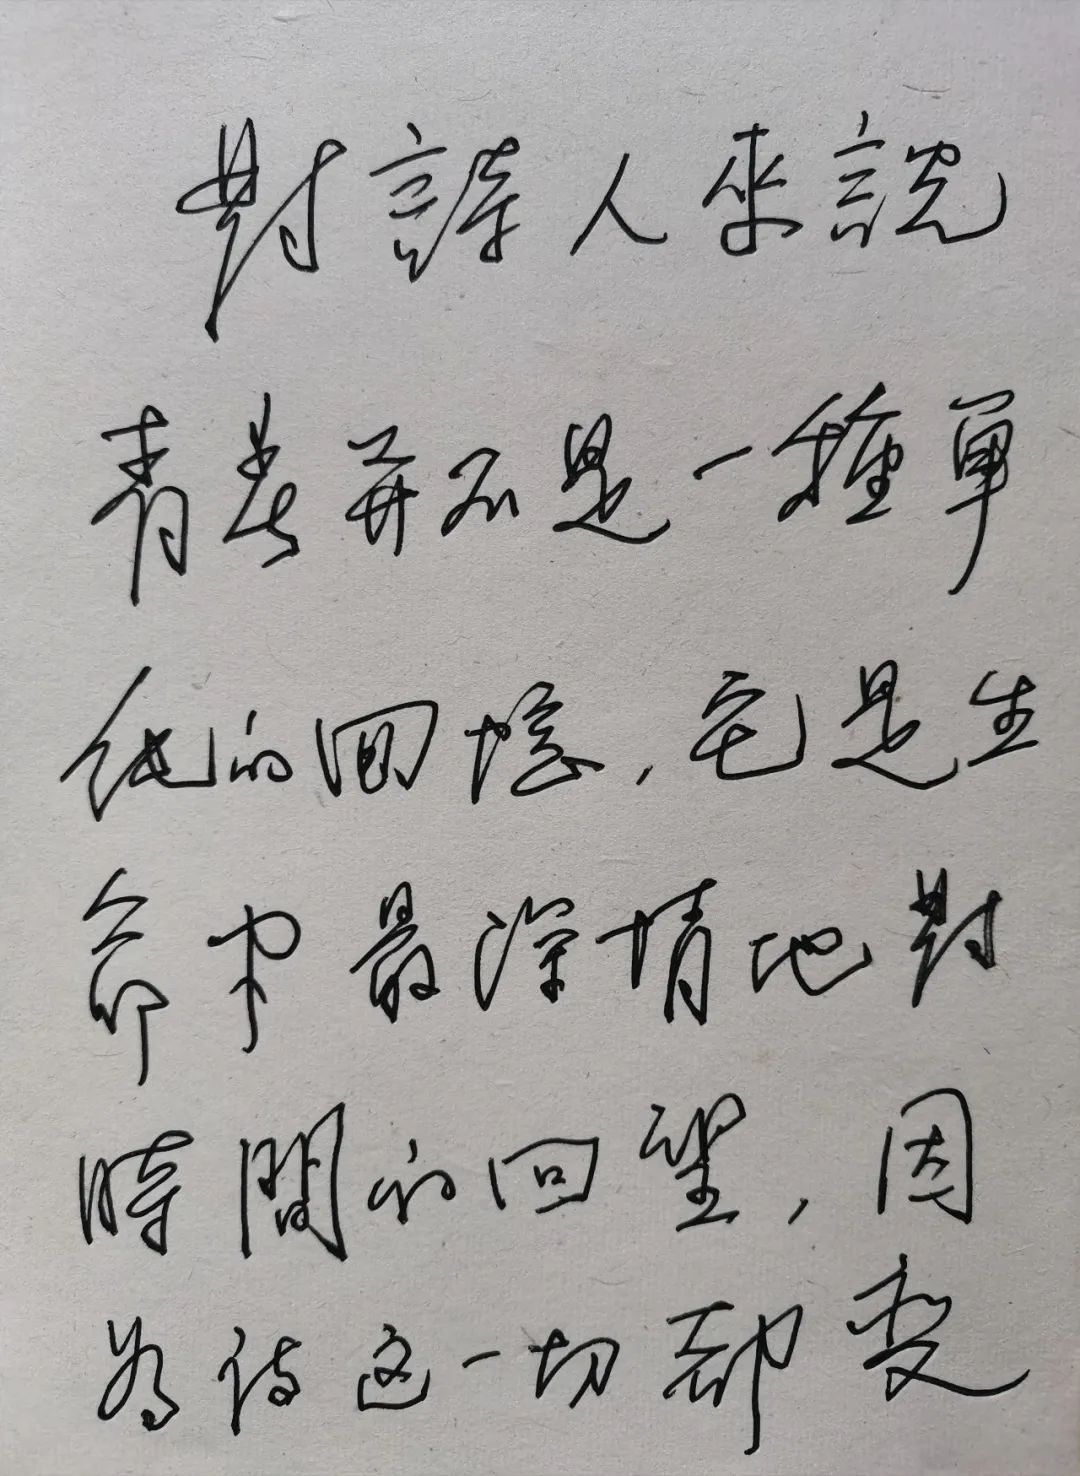 對詩人來說
青春并不是一種單
純的回憶,它是生
命中最深情地對
時間的回望,因
為待这一切都变